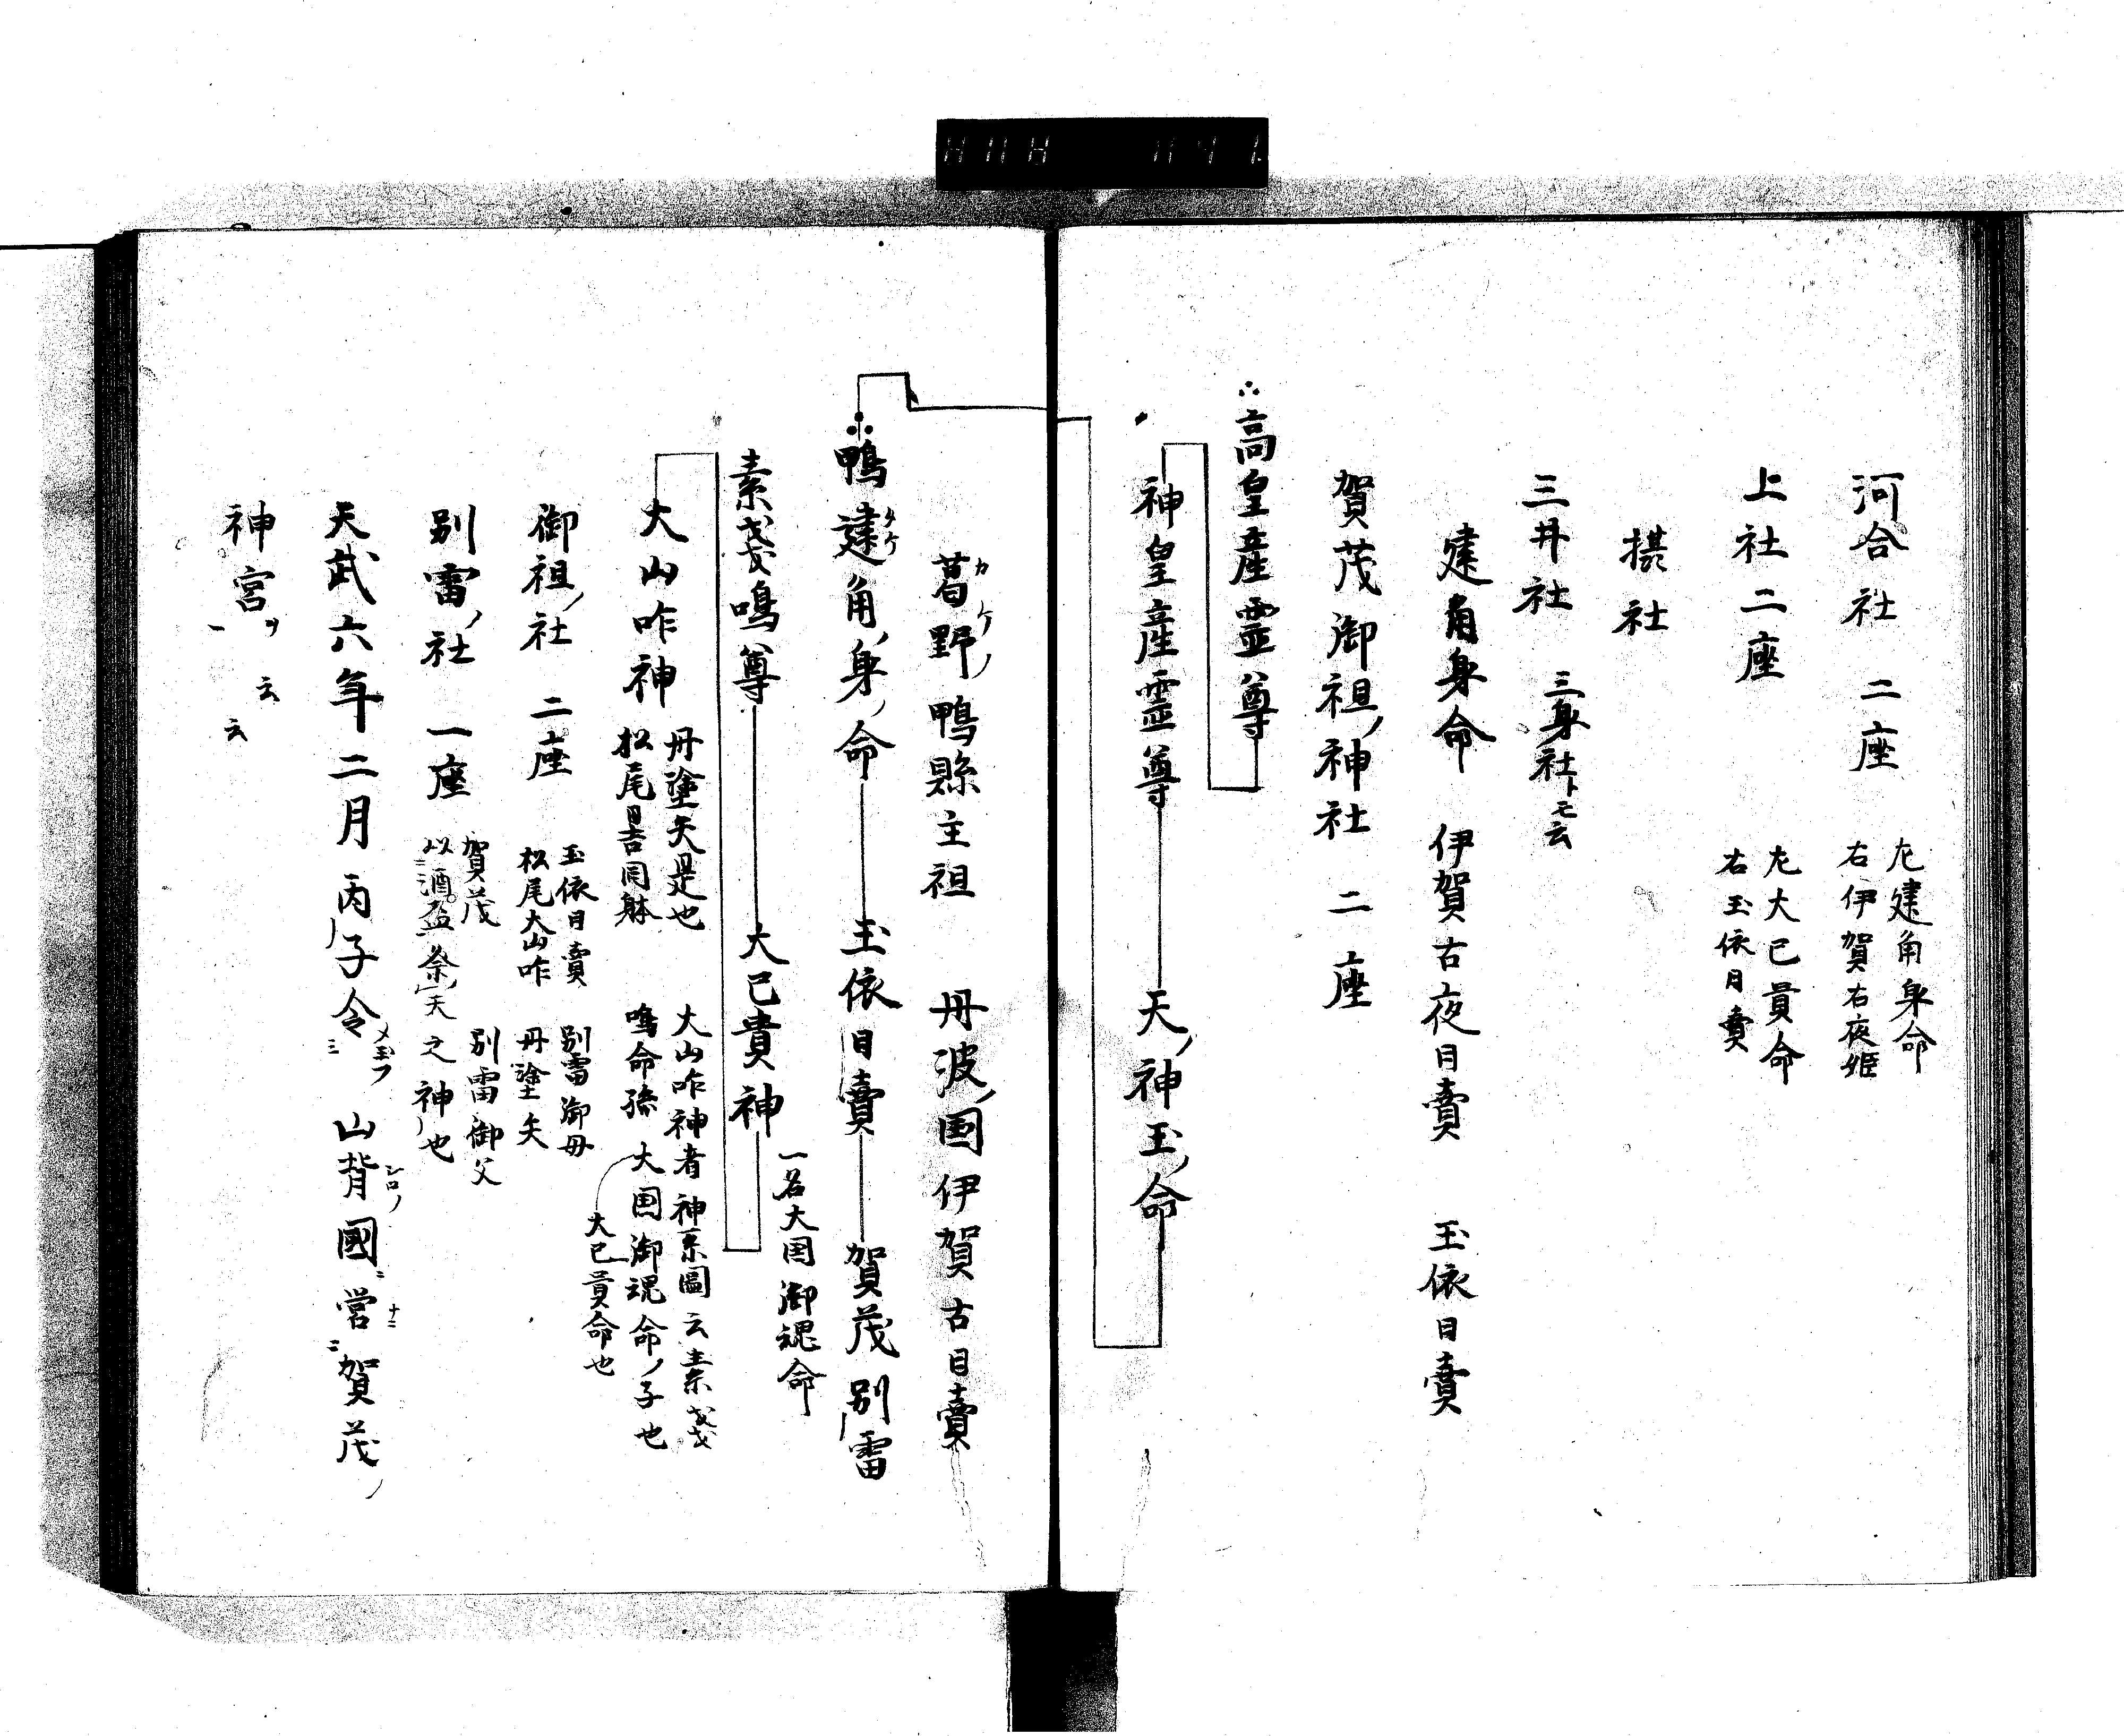 河合社 二座 左建角身命
右伊賀右夜姫
上社二座 左大己貴命
右玉依日賣
摂社
三井社 三身社トモ云
建角身命 伊賀古夜日賣 玉依日賣
賀茂御祖ノ神社 二座
高皇産霊尊
神皇産霊尊 天ノ神玉ノ命
葛野ノ鴨縣主祖 丹波ノ国伊賀古日賣
カケノ
鴨建角ノ身ノ命 玉依日賣 賀茂別雷
タケ
一名大国御魂命
素戔嗚尊 大己貴神
大山咋神 丹塗矢是也 大山咋神者神系圖云素戔
松尾日吉同躰 鳴命孫 大国御魂命ノ子也
大己貴命也
御祖ノ社 二座 玉依日賣 別雷御母
松尾大山咋 丹塗矢
別雷ノ社 一座 賀茂 別雷御父
以酒盃祭天之神也
天武六年二月丙子令山背國営賀茂ノ
神宮ヲ云云